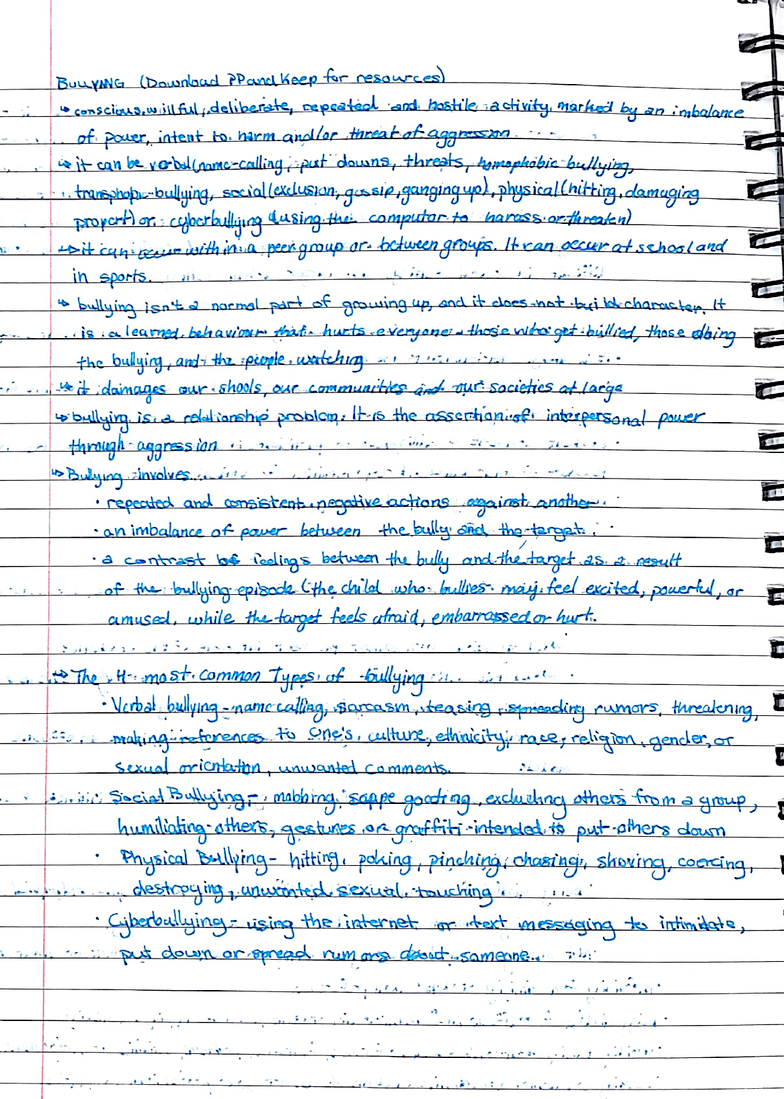 BULLYING (Download PP and Keep for resources)
↳ conscious, willful, deliberate, repeated and hostile activity marked by an imbalance
of power, intent to harm and/or threat of aggression
↳ it can be verbal (name-calling, put downs, threats, homophobic bullying,
transphobic bullying, social (exclusion, gossip, ganging up), physical (hitting, damaging
propert) or cyberbullying (using the computer to harass or threaten)
↳ it can occur within a peer group or between groups. It can occur at school and
in sports.
↳ bullying isn't a normal part of growing up, and it does not build character. It
is a learned behaviour that hurts everyone - those who get bullied, those doing
the bullying, and the people watching
↳ it damages our shools, our communities and our societies at large
↳ bullying is a relationship problem. It is the assertion of interpersonal power
through aggression
↳ Bullying involves...
• repeated and consistent negative actions against another
• an imbalance of power between the bully and the target.
• a contrast of feelings between the bully and the target as a result
of the bullying episode (the child who bullies may feel excited, powerful, or
amused, while the target feels afraid, embarrassed or hurt.
↳ The 4 most common Types of bullying
• Verbal bullying - name calling, sarcasm, teasing, spreading rumors, threatening,
making references to one's culture, ethnicity, race, religion, gender, or
sexual orientation, unwanted comments.
• Social Bullying - mobbing, excluding others from a group,
humiliating others, gestures or graffiti intended to put others down
• Physical Bullying - hitting, poking, pinching, chasing, shoving, coercing,
destroying, unwanted sexual touching
• Cyberbullying - using the internet or text messaging to intimidate,
put down or spread rumors about someone.